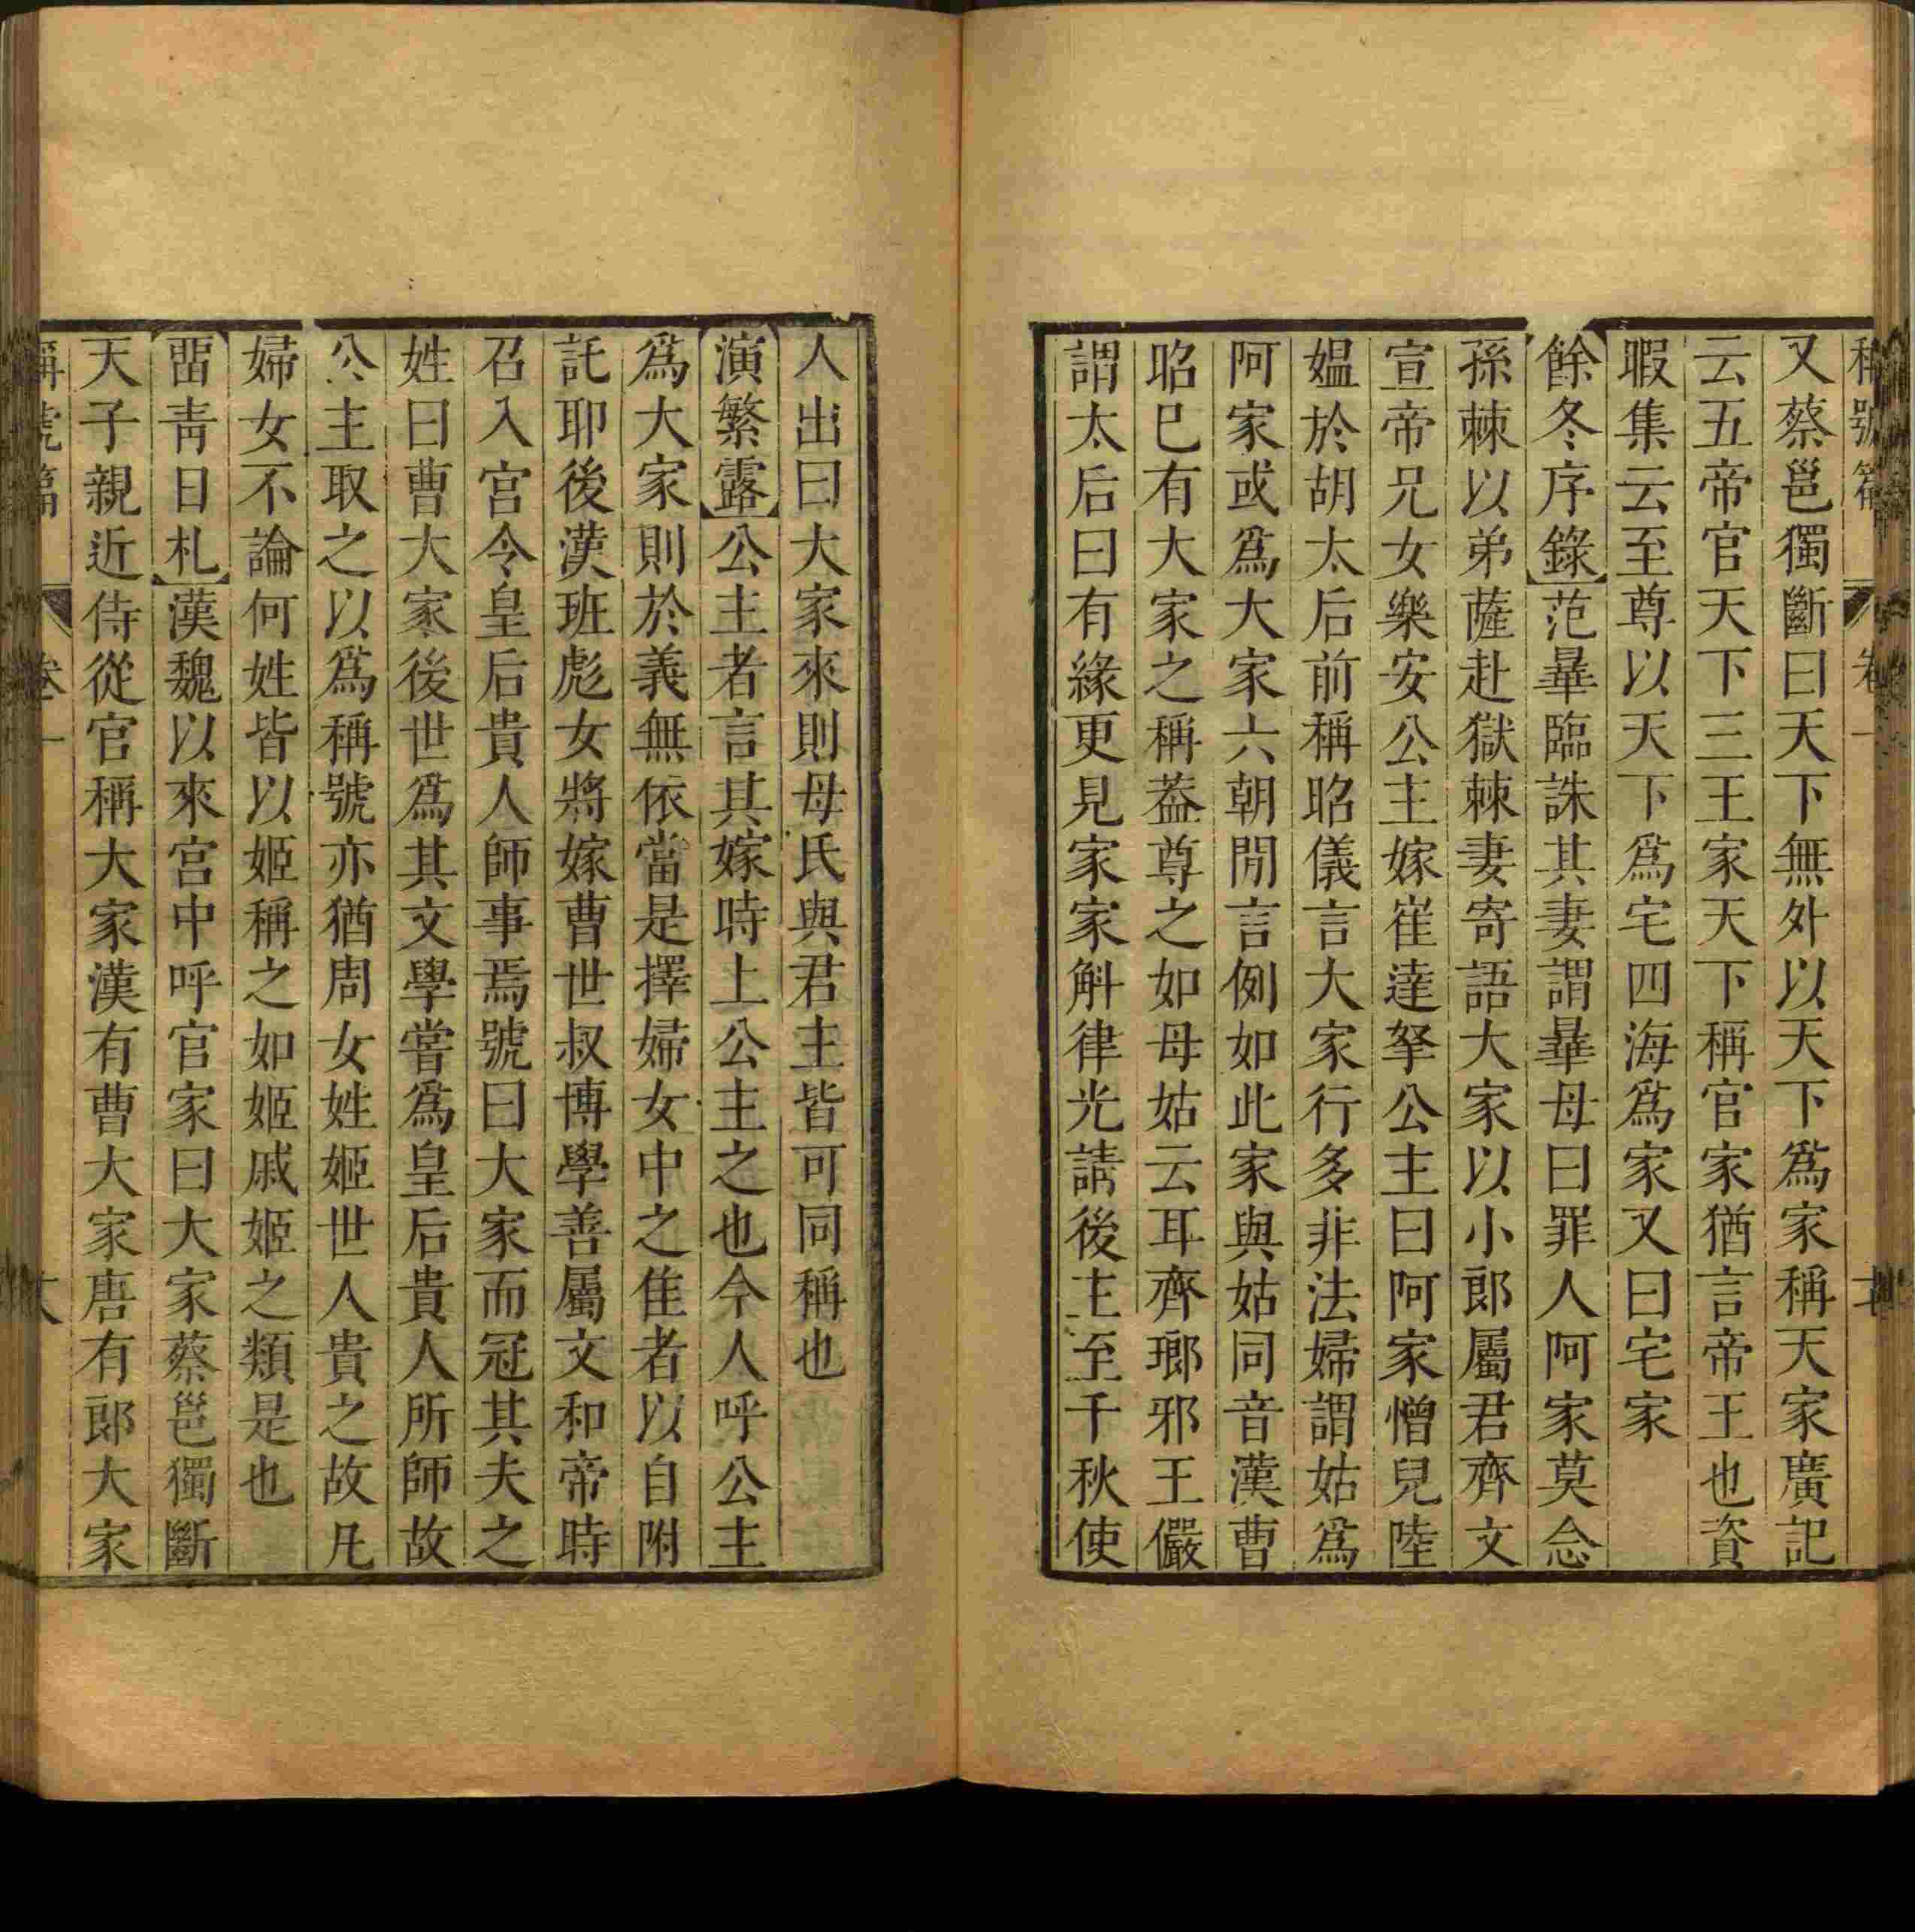 稱號篇 卷一
又蔡邕獨斷曰天下無外以天下爲家稱天家廣記
云五帝官天下三王家天下稱官家猶言帝王也資
暇集云至尊以天下爲宅四海爲家又曰宅家
餘冬序錄范曅臨誅其妻謂曅母曰罪人阿家莫念
孫棘以弟薩赴獄棘妻寄語大家以小郎屬君齊文
宣帝兄女樂安公主嫁崔達拏公主曰阿家憎兒陸
媼於胡太后前稱昭儀言大家行多非法婦謂姑爲
阿家或爲大家六朝閒言例如此家與姑同音漢曹
昭巳有大家之稱葢尊之如母姑云耳齊瑯邪王儼
謂太后曰有緣更見家家斛律光請後主至千秋使
人出曰大家來則母氏與君主皆可同稱也
演繁露公主者言其嫁時上公主之也今人呼公主
爲大家則於義無依當是擇婦女中之隹者以自附
託耶後漢班彪女將嫁曹世叔博學善屬文和帝時
召入宮令皇后貴人師事焉號曰大家而冠其夫之
姓曰曹大家後世爲其文學嘗爲皇后貴人所師故
公主取之以爲稱號亦猶周女姓姬世人貴之故凡
婦女不論何姓皆以姬稱之如姬戚姬之類是也
畱靑日札漢魏以來宮中呼官家曰大家蔡邕獨斷
天子親近侍從官稱大家漢有曹大家唐有郎大家
稱號篇 卷一